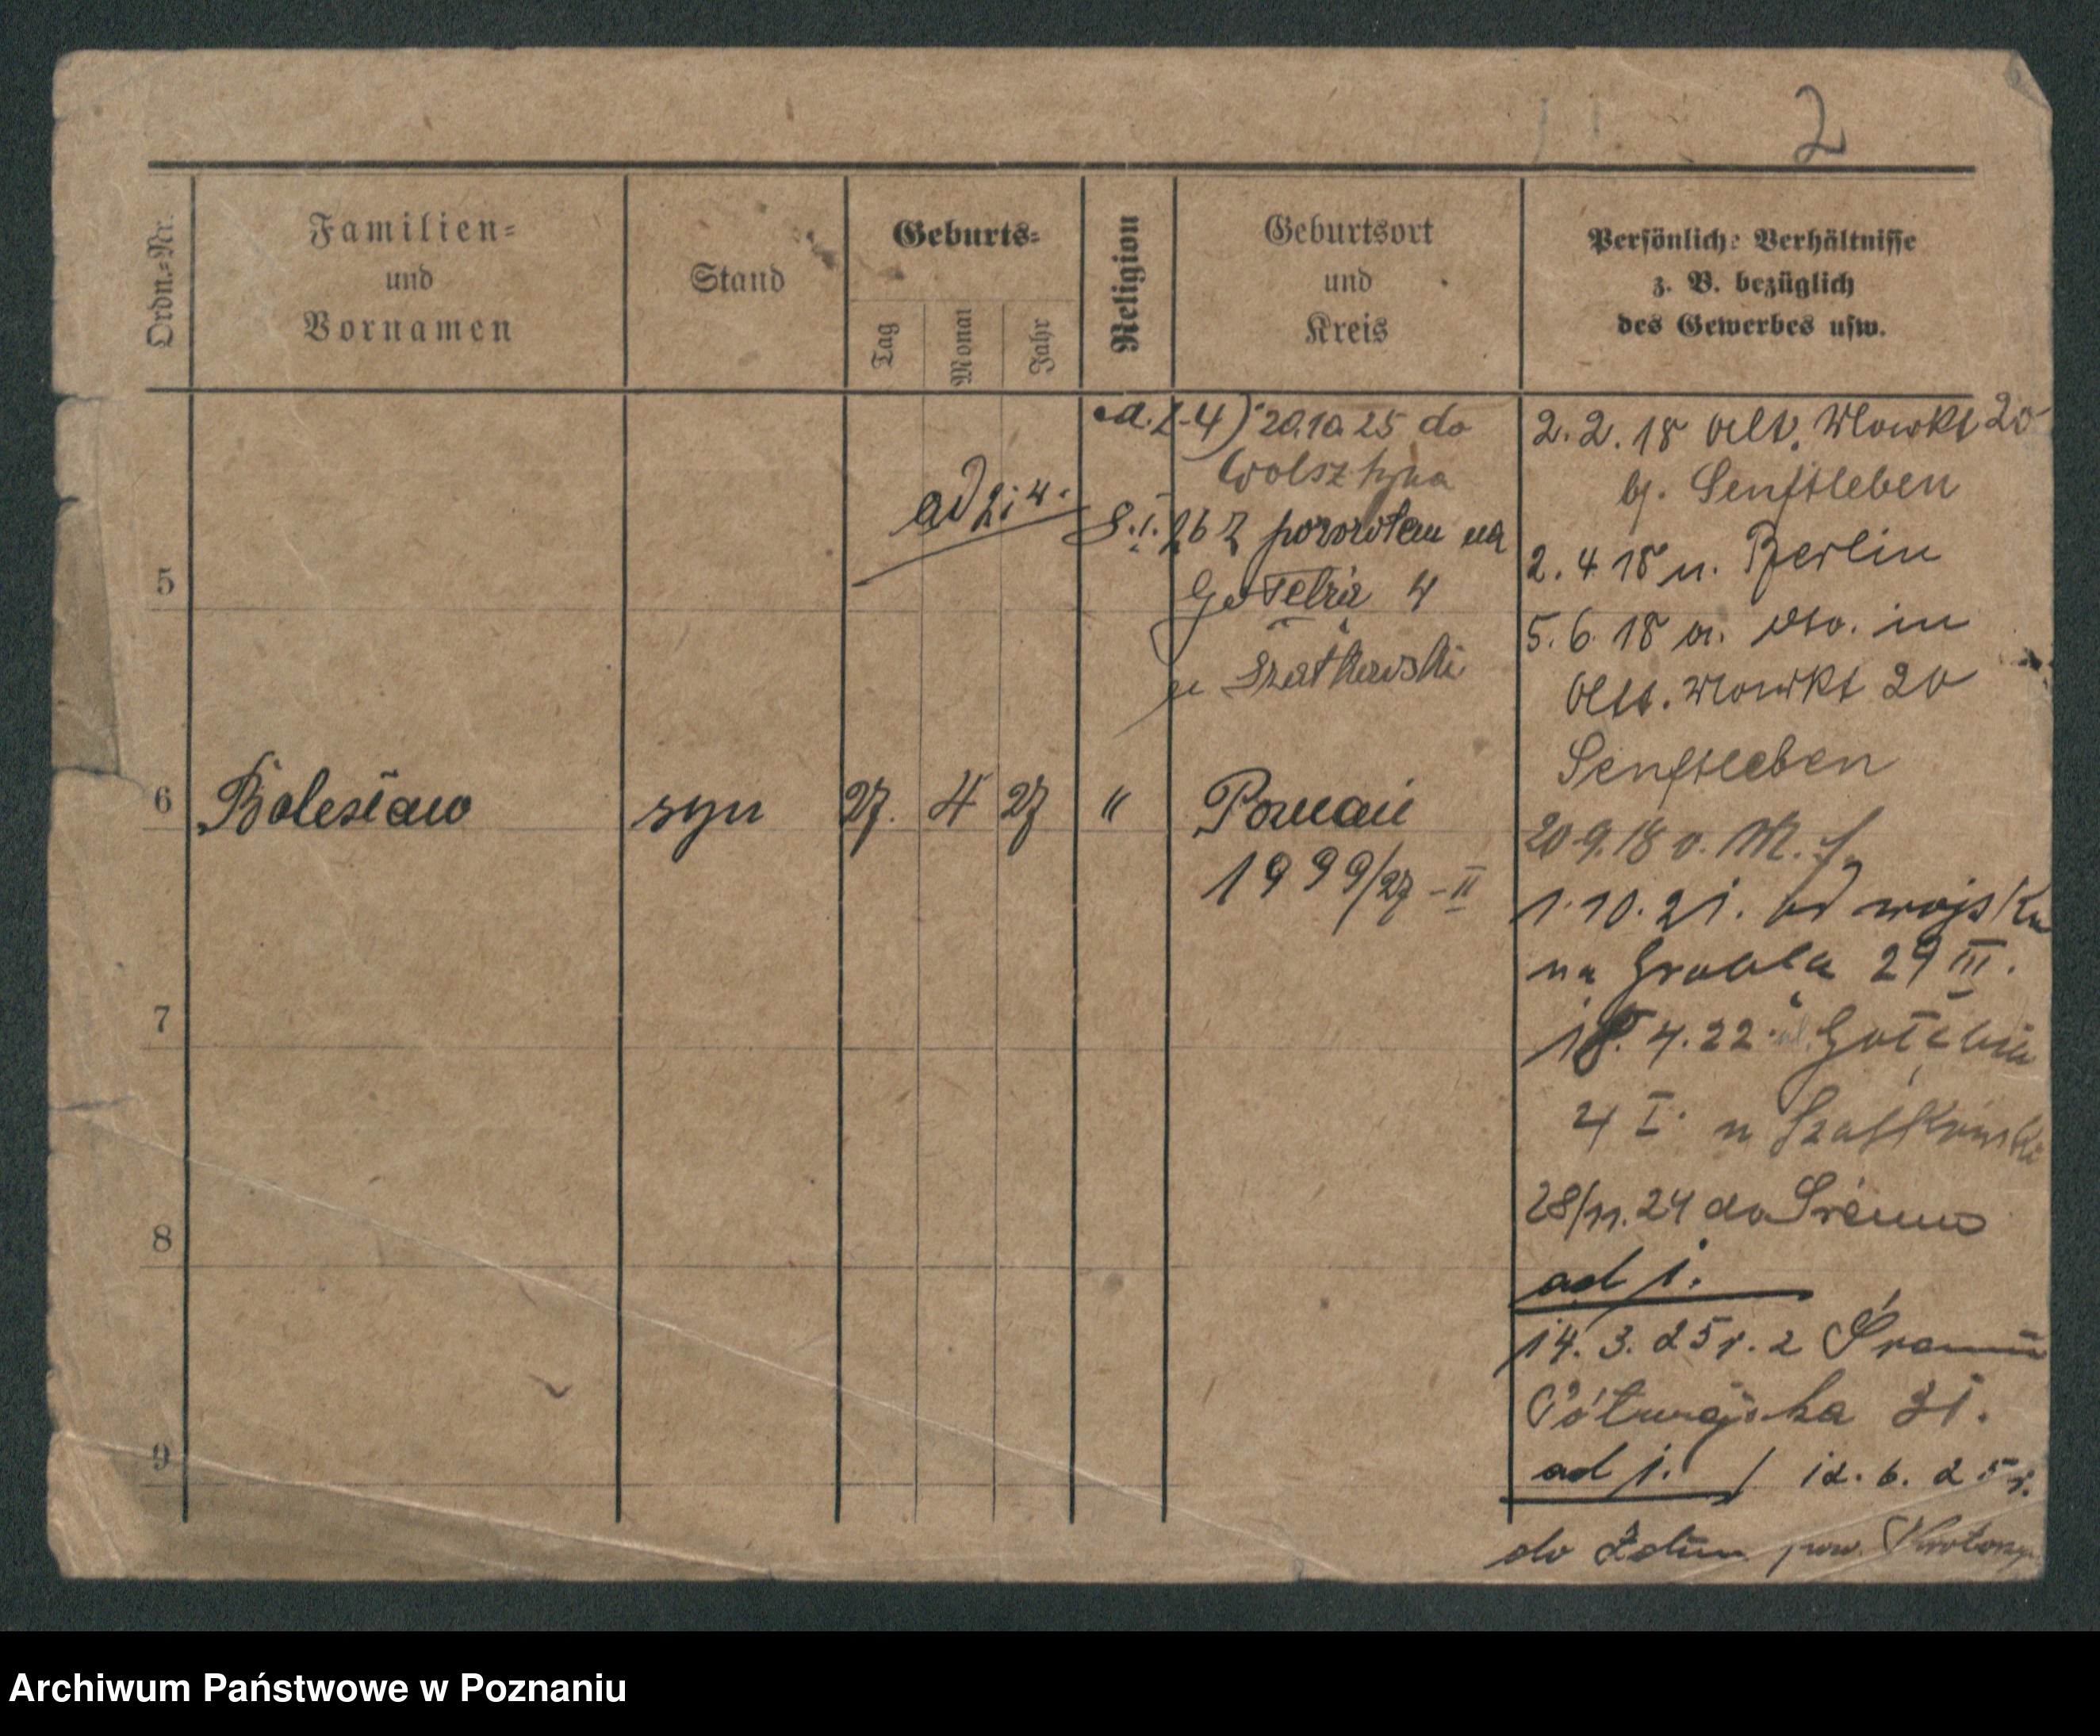 2
Ordn.-Nr.
Familien-
und
Vornamen
Stand
Geburts-
Tag
Monat
Jahr
Religion
Geburtsort
und
Kreis
Persönliche Verhältnisse
z. B. bezüglich
des Gewerbes usw.
20.10.25 do
Wolsztyna
ad 2 i 4.
8.I.26 z powrotem na
Gołębia 4
u Szatkowski
5
6 Bolesław syn 27. 4 27 " Poznań
1999/27 - II
7
8
9
2.2.18 Alt. Markt 20
b. Senftleben
2.4.18 n. Berlin
5.6.18 in
Alt. Markt 20
Senftleben
20.9.18 v. M.
1.10.21. od wojska
na Grobla 29 III.
18.4.22 ul. Gołębia
4 I. u Szatkowski
28/11.24 do Śremu
ad 1.
14.3.25 r. z Śremu
Półwiejska 31.
ad 1. / 12.6.25 r.
do Zduny pow. Krotoszyn
Archiwum Państwowe w Poznaniu